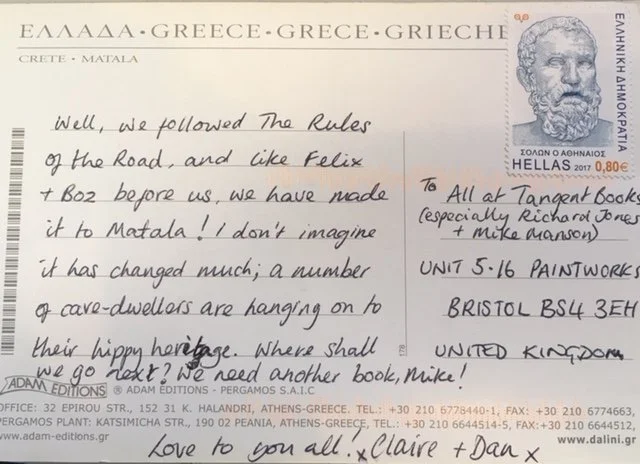 ΕΛΛΑΔΑ · GREECE · GRECE · GRIECHE
CRETE · MATALA
ΕΛΛΗΝΙΚΗ ΔΗΜΟΚΡΑΤΙΑ
ΣΟΛΩΝ Ο ΑΘΗΝΑΙΟΣ
HELLAS 2017 0,80€
Well, we followed The Rules
of the Road, and like Felix
+ Boz before us, we have made
it to Matala! I don't imagine
it has changed much; a number
of cave-dwellers are hanging on to
their hippy heritage. Where shall
we go next? We need another book, Mike!
Love to you all! x Claire + Dan x
To All at Tangent Books
(especially Richard Jones
+ Mike Manson)
UNIT 5·16 PAINTWORKS
BRISTOL BS4 3EH
UNITED KINGDOM
178
ADAM EDITIONS ® ADAM EDITIONS - PERGAMOS S.A.I.C
OFFICE: 32 EPIROU STR., 152 31 K. HALANDRI, ATHENS-GREECE. TEL.: +30 210 6778440-1, FAX: +30 210 6774663,
PERGAMOS PLANT: KATSIMICHA STR., 190 02 PEANIA, ATHENS-GREECE, TEL.: +30 210 6644514-5, FAX: +30 210 6644512,
www.adam-editions.gr
www.dalini.gr